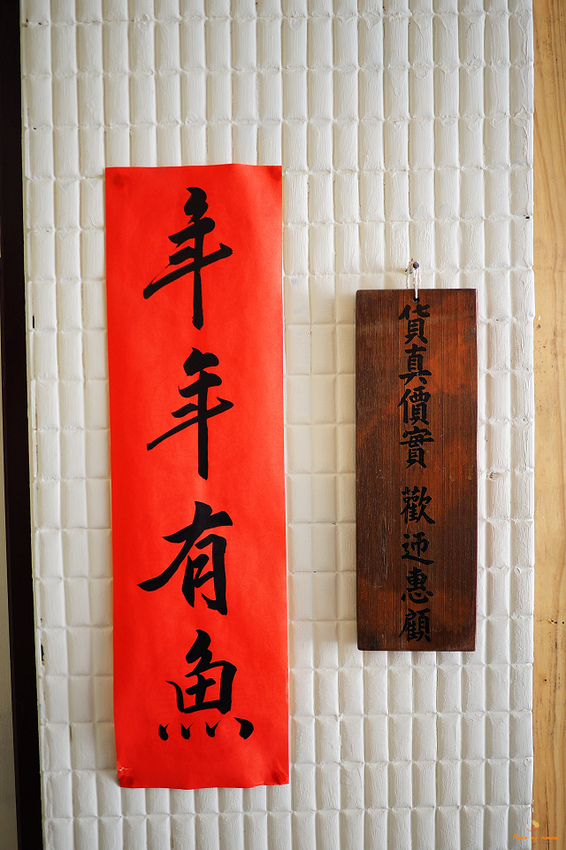 年年有魚
貨真價實 歡迎惠顧